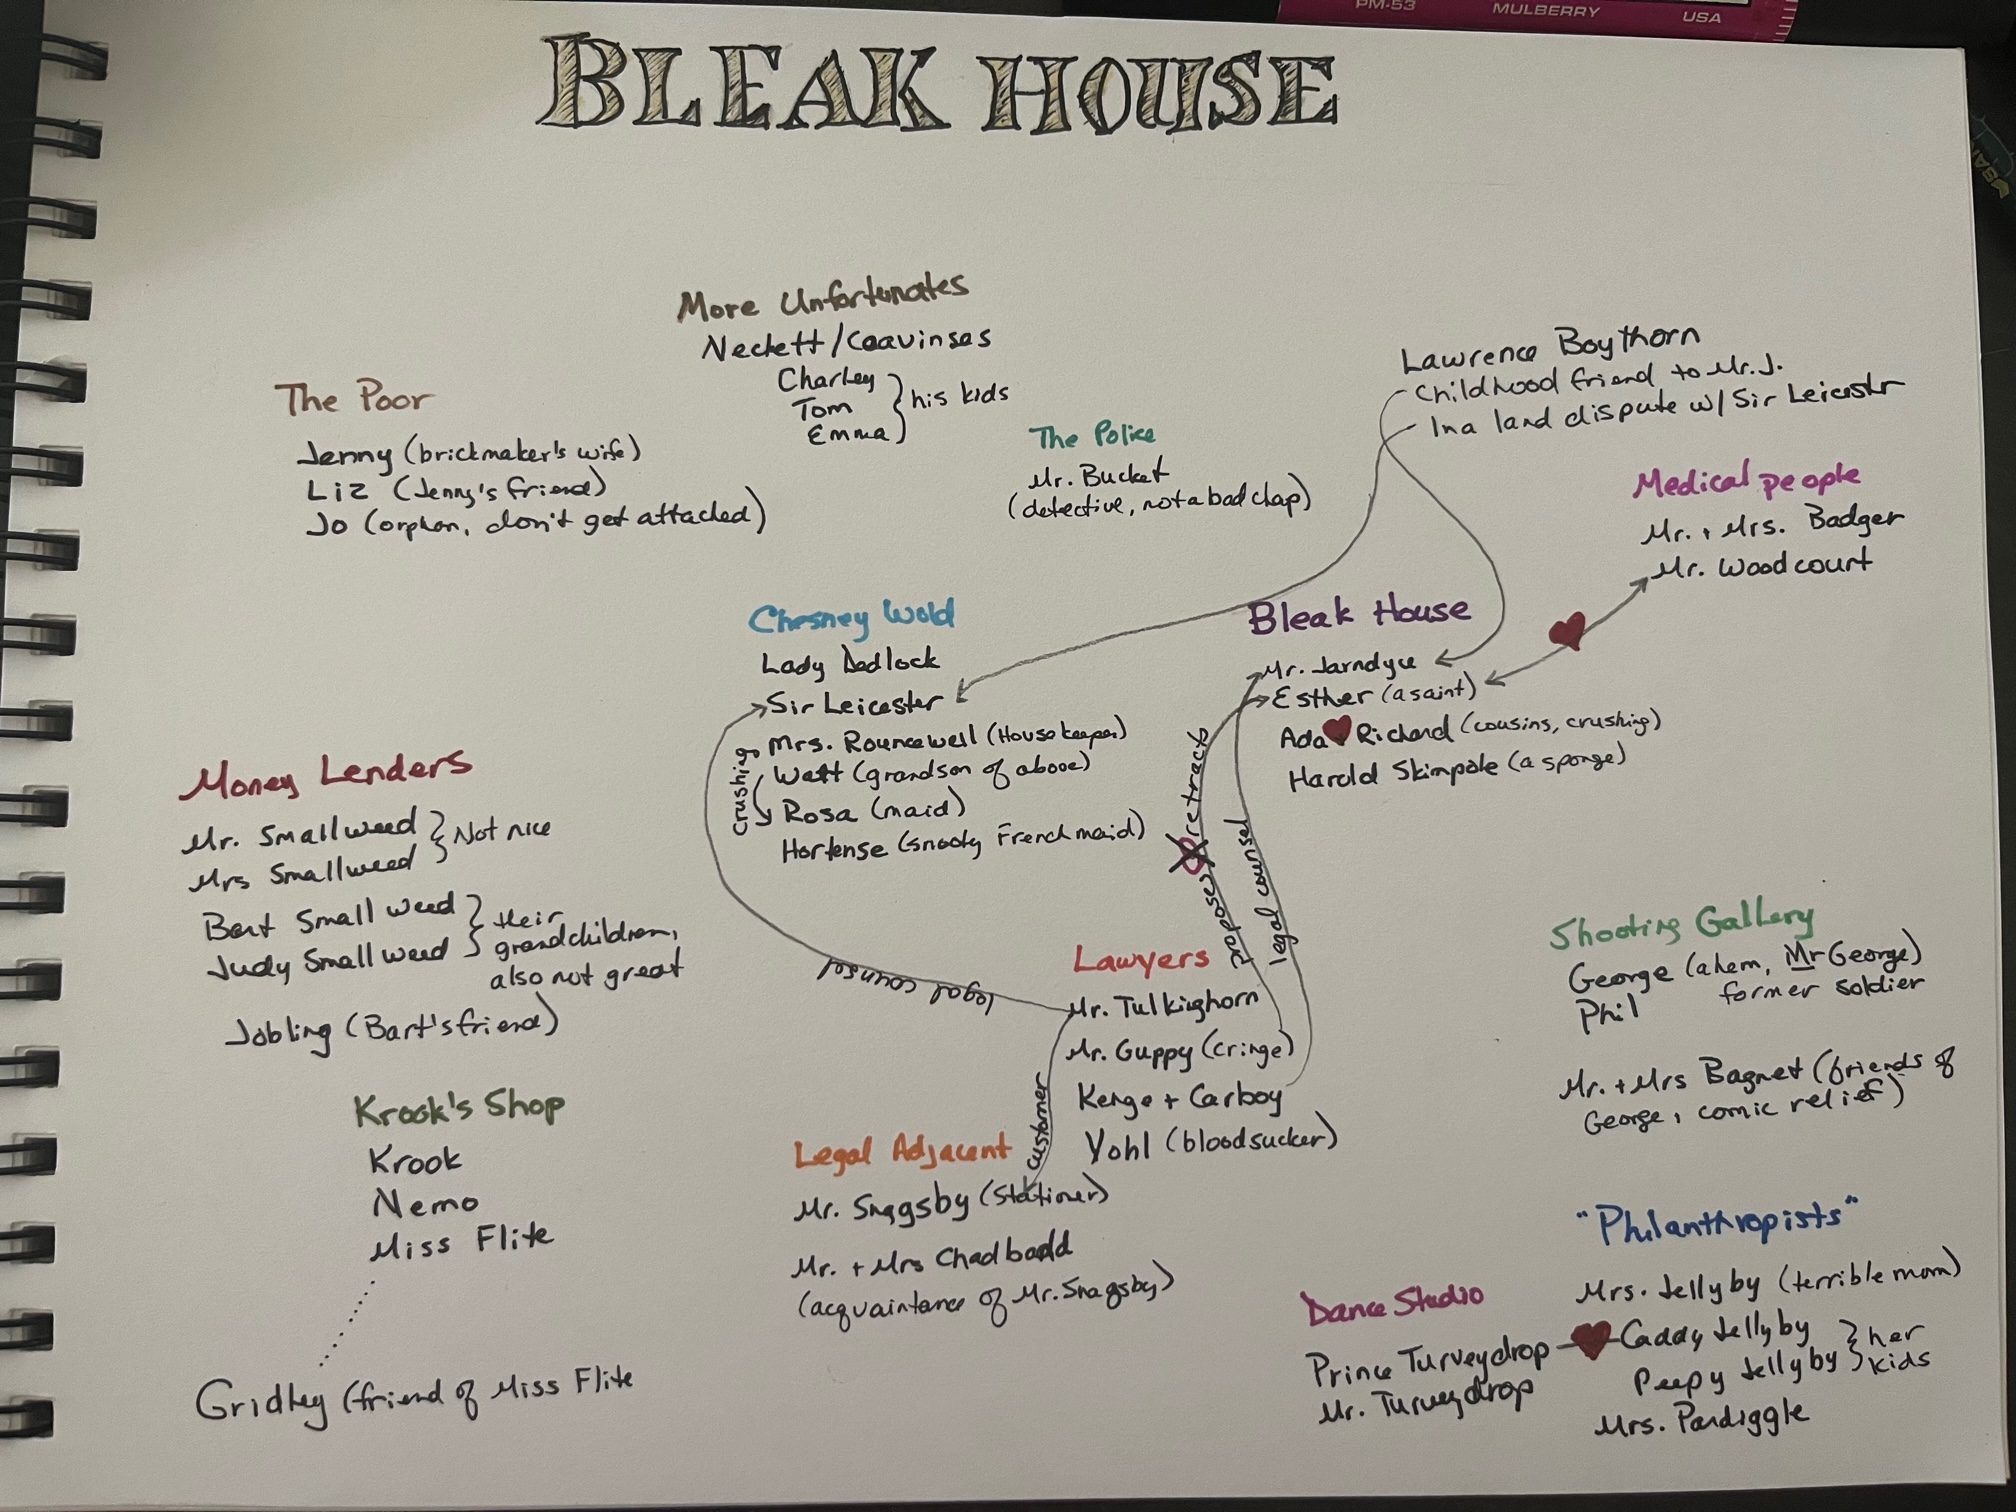 PM-53 MULBERRY USA
BLEAK HOUSE
More Unfortunates
Neckett/Coavinses
Charley
Tom
Emma
his kids
The Poor
Jenny (brickmaker's wife)
Liz (Jenny's friend)
Jo (orphan, don't get attached)
The Police
Mr. Bucket
(detective, not a bad chap)
Lawrence Boythorn
- Childhood friend to Mr. J.
- In a land dispute w/ Sir Leicester
Medical people
Mr. + Mrs. Badger
Mr. Woodcourt
Chesney Wold
Lady Dedlock
Sir Leicester
Mrs. Rouncewell (Housekeeper)
Watt (grandson of above)
crushing
Rosa (maid)
Hortense (snooty French maid)
Bleak House
Mr. Jarndyce
Esther (a saint)
Ada ♥ Richard (cousins, crushing)
Harold Skimpole (a sponge)
Money Lenders
Mr. Smallweed
Mrs Smallweed
Not nice
Bart Smallweed
Judy Smallweed
their
grandchildren,
also not great
Jobling (Bart's friend)
Krook's Shop
Krook
Nemo
Miss Flite
Gridley (friend of Miss Flite
legal counsel
Lawyers
Mr. Tulkinghorn
Mr. Guppy (cringe)
Kenge + Carboy
Vohl (bloodsucker)
proposes, retracts
legal counsel
customer
Legal Adjacent
Mr. Snagsby (Stationer)
Mr. + Mrs Chadbadd
(acquaintance of Mr. Snagsby)
Shooting Gallery
George (ahem, Mr George)
former soldier
Phil
Mr. + Mrs Bagnet (friends of
George, comic relief)
"Philanthropists"
Mrs. Jellyby (terrible mom)
Caddy Jellyby
Peepy Jellyby
her
kids
Mrs. Pardiggle
Dance Studio
Prince Turveydrop
Mr. Turveydrop